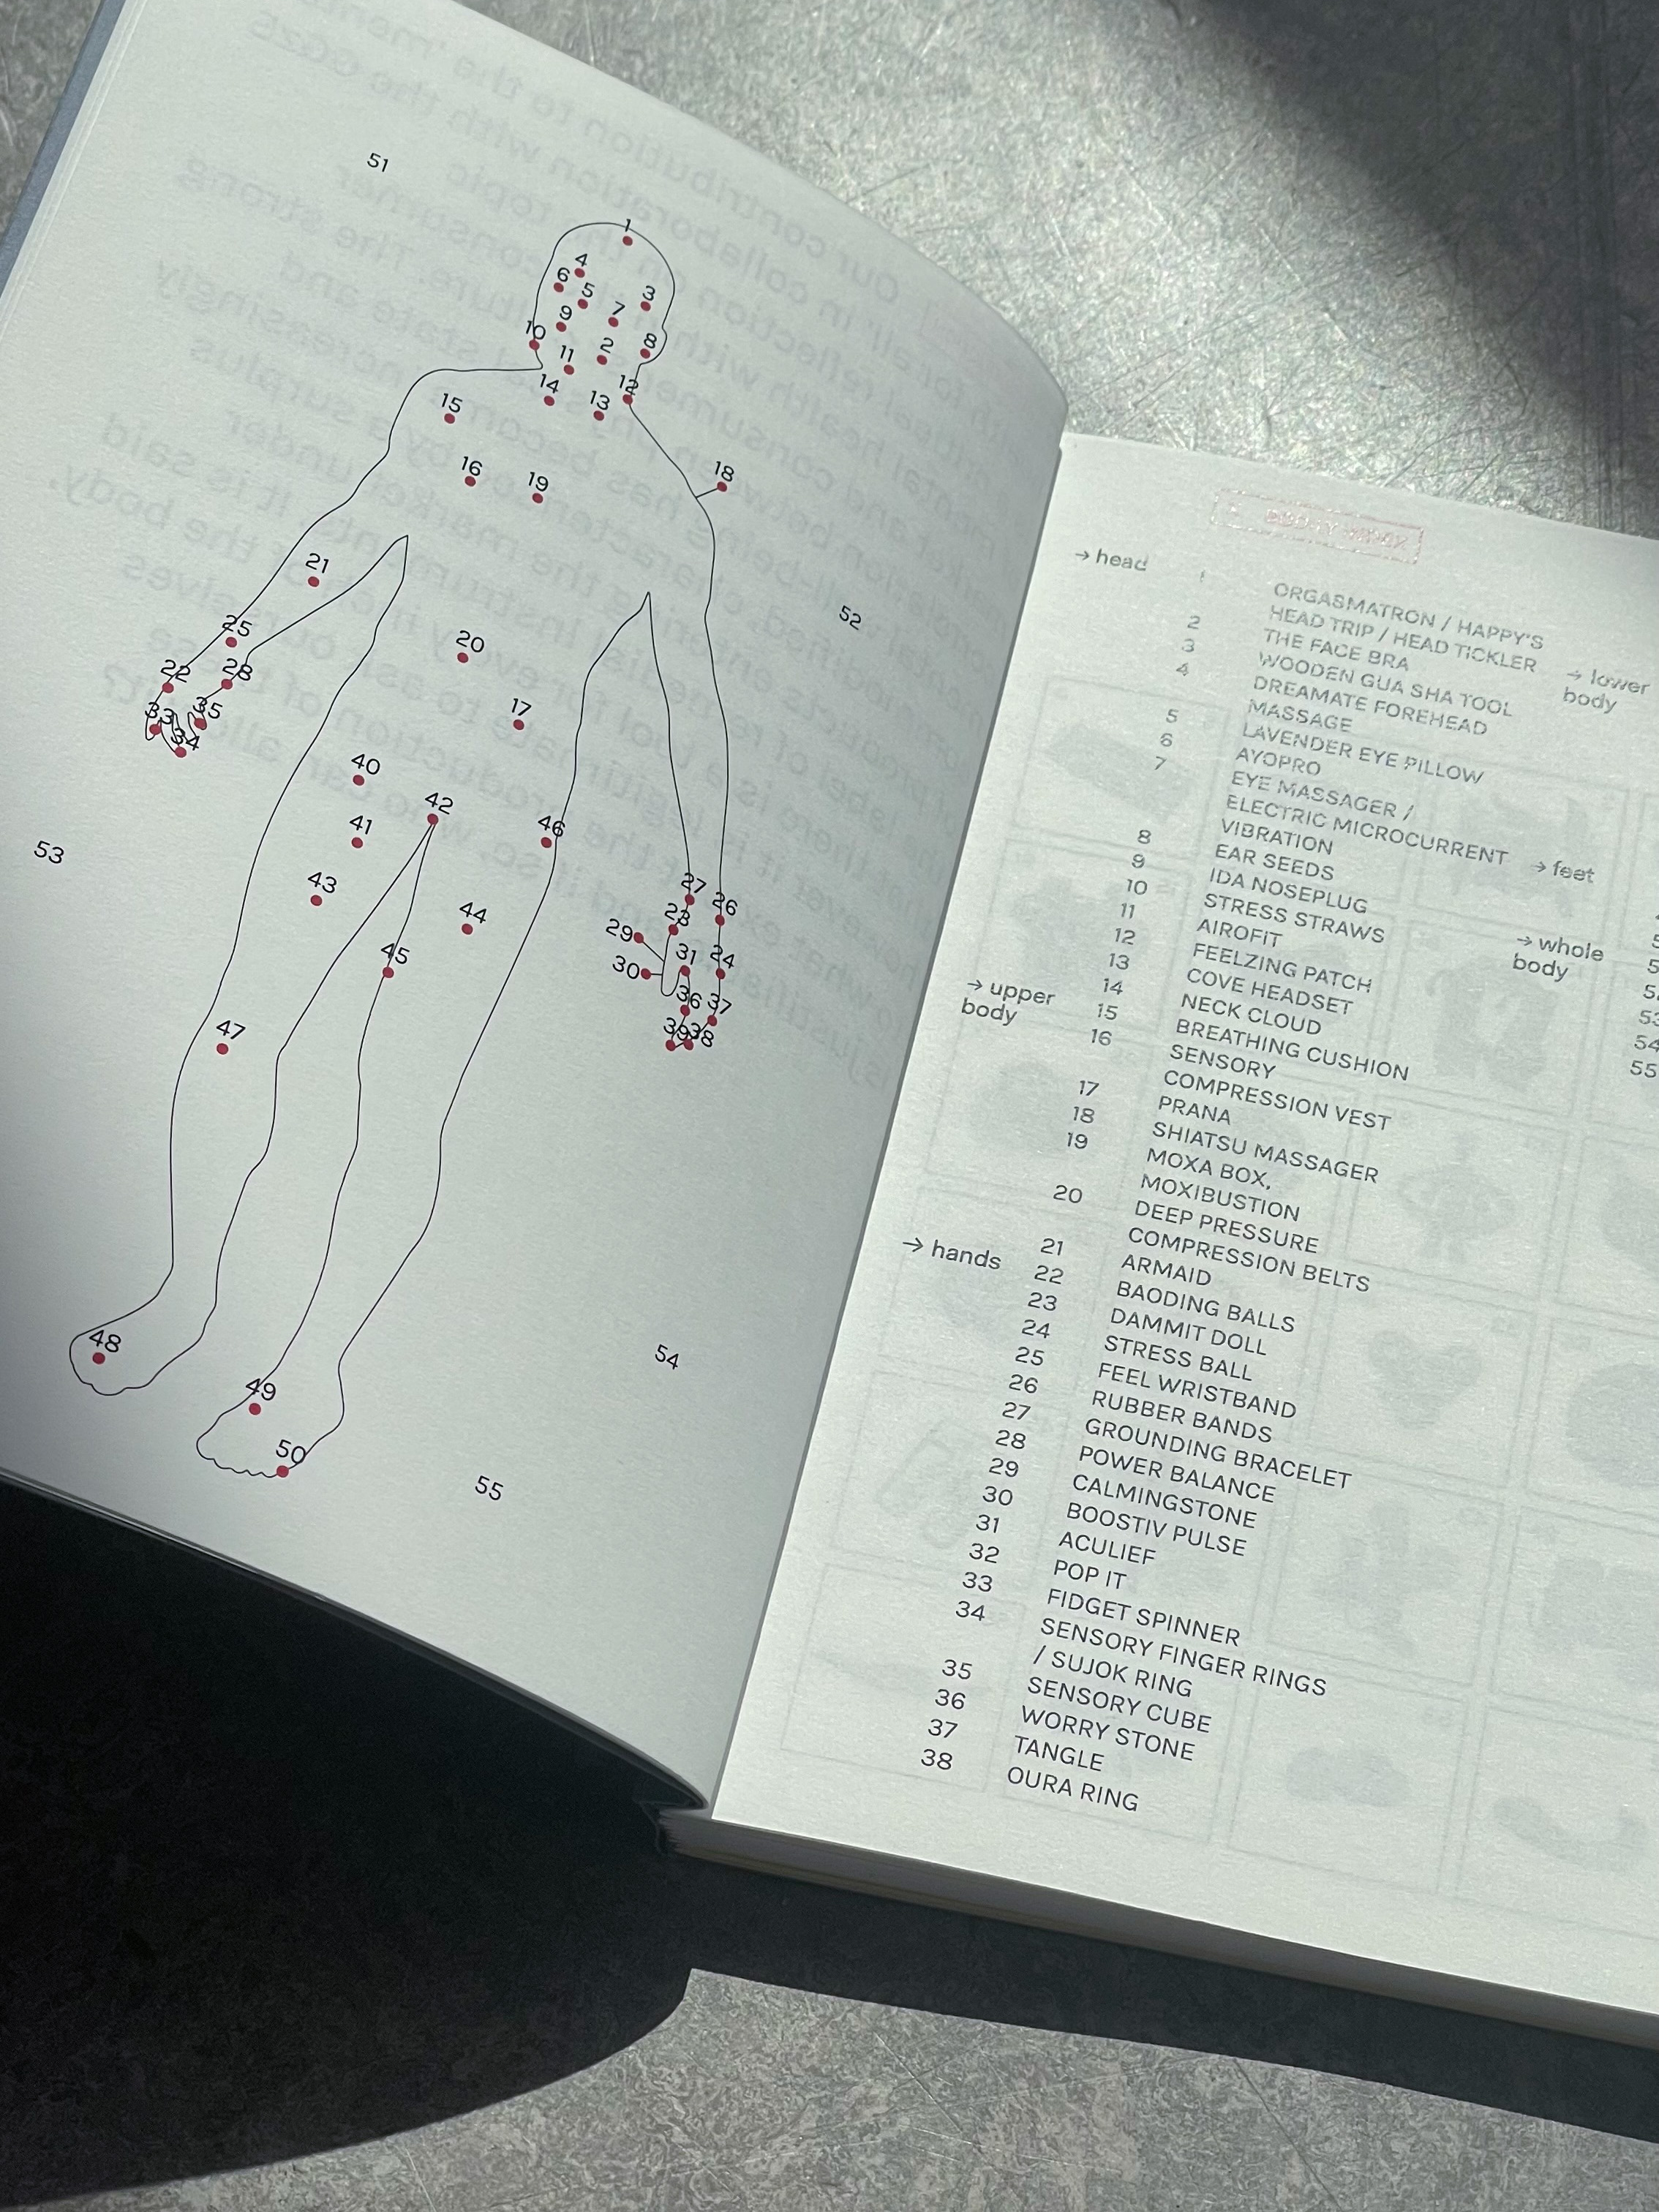 51
1
4
6
5
3
7
9
10
2
8
11
12
14
13
15
16
19
18
21
52
25
20
22
28
17
35
33
34
40
42
41
46
53
43
27
26
44
23
29
31
24
45
30
36
37
39
38
47
48
54
49
50
55
→ head
1 ORGASMATRON / HAPPY'S
HEAD TRIP / HEAD TICKLER
2 THE FACE BRA
3 WOODEN GUA SHA TOOL
4 DREAMATE FOREHEAD
MASSAGE
5 LAVENDER EYE PILLOW
6 AYOPRO
7 EYE MASSAGER /
ELECTRIC MICROCURRENT
VIBRATION
8 EAR SEEDS
9 IDA NOSEPLUG
10 STRESS STRAWS
11 AIROFIT
12 FEELZING PATCH
13 COVE HEADSET
→ upper
body
14 NECK CLOUD
15 BREATHING CUSHION
16 SENSORY
COMPRESSION VEST
17 PRANA
18 SHIATSU MASSAGER
19 MOXA BOX,
MOXIBUSTION
20 DEEP PRESSURE
COMPRESSION BELTS
→ hands
21 ARMAID
22 BAODING BALLS
23 DAMMIT DOLL
24 STRESS BALL
25 FEEL WRISTBAND
26 RUBBER BANDS
27 GROUNDING BRACELET
28 POWER BALANCE
29 CALMINGSTONE
30 BOOSTIV PULSE
31 ACULIEF
32 POP IT
33 FIDGET SPINNER
34 SENSORY FINGER RINGS
/ SUJOK RING
35 SENSORY CUBE
36 WORRY STONE
37 TANGLE
38 OURA RING
→ lower
body
→ feet
→ whole
body
53
54
55